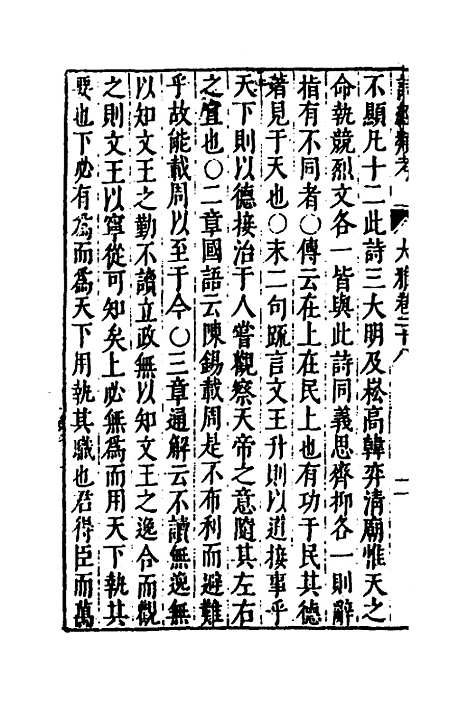 詩經類考 大雅卷二十八 二
不顯凡十二此詩三大明及崧高韓弈清廟惟天之
命執競烈文各一皆與此詩同義思齊抑各一則辭
指有不同者○傳云在上在民上也有功于民其德
著見于天也○末二句疏言文王升則以道接事乎
天下則以德接治于人嘗觀察天帝之意隨其左右
之宜也○二章國語云陳錫載周是不布利而避難
乎故能載周以至于今○三章通解云不讀無逸無
以知文王之勤不讀立政無以知文王之逸今而觀
之則文王以寧從可知矣上必無為而用天下執其
要也下必有為而為天下用執其職也君得臣而萬